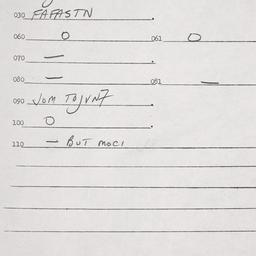 030 FAFASTN
060 O 061 O
070 —
080 — 081 —
090 JOM TOJVNT
100 O
110 — BUT MOCI